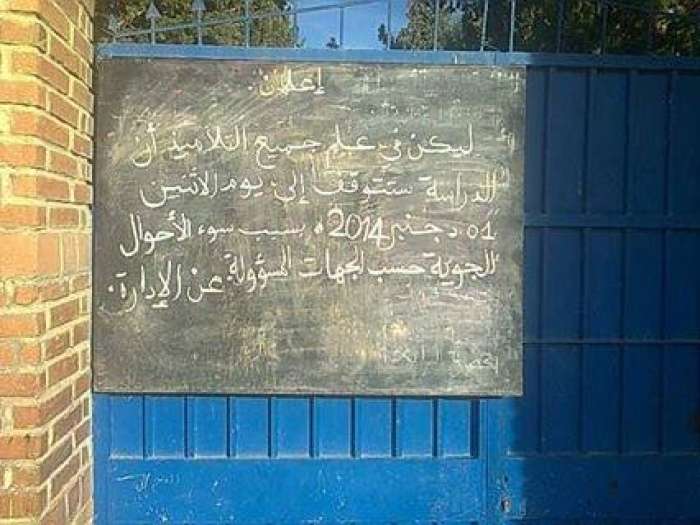 إعلان
ليكن في علم جميع التلاميذ أن
الدراسة ستتوقف إلى يوم الاثنين
01 دجنبر 2014م بسبب سوء الأحوال
الجوية حسب الجهات المسؤولة عن الإدارة.